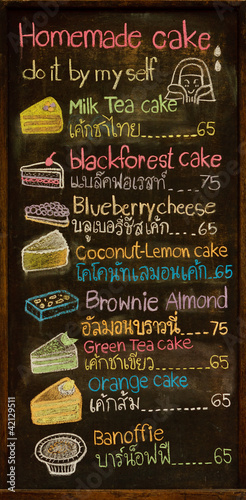 Homemade cake
do it by my self
Milk Tea cake
เค้กชาไทย........65
blackforest cake
แบล๊คฟอเรสท์ 75
Blueberry cheese
บลูเบอรี่ชีสเค้ก 65
Coconut-Lemon cake
โคโคนัทเลมอนเค้ก.65
Brownie Almond
อัลมอนบราวนี่.....75
Green Tea cake
เค้กชาเขียว......65
orange cake
เค้กส้ม.........65
Banoffie
บาร์น็อฟฟี่......65
© 42129511